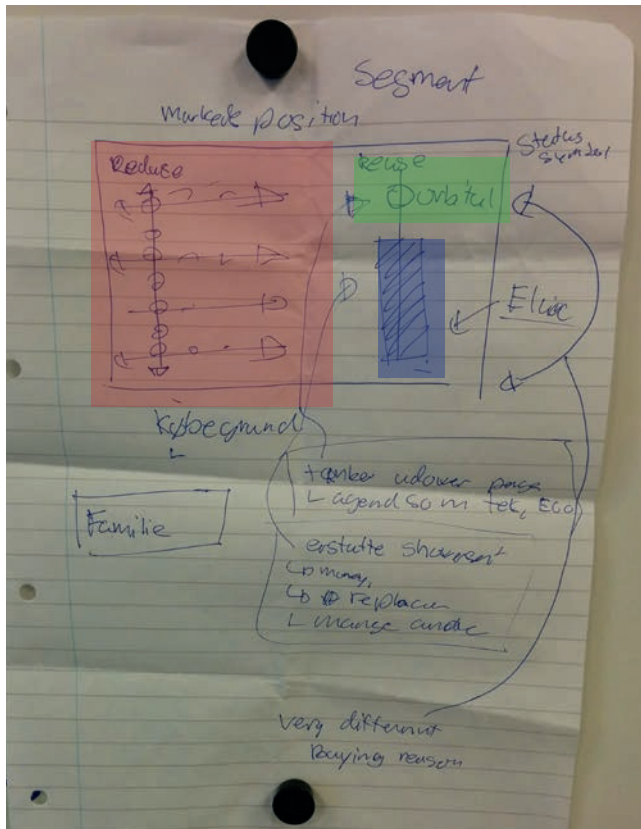 Segment
markeds position
Status
Symbol
Reduse
Reuse
orbital
Købegrund
tænker udover
L agend som tek, Eco
Familie
erstatte
money,
replacer
L mange andre
very different
Buying reason